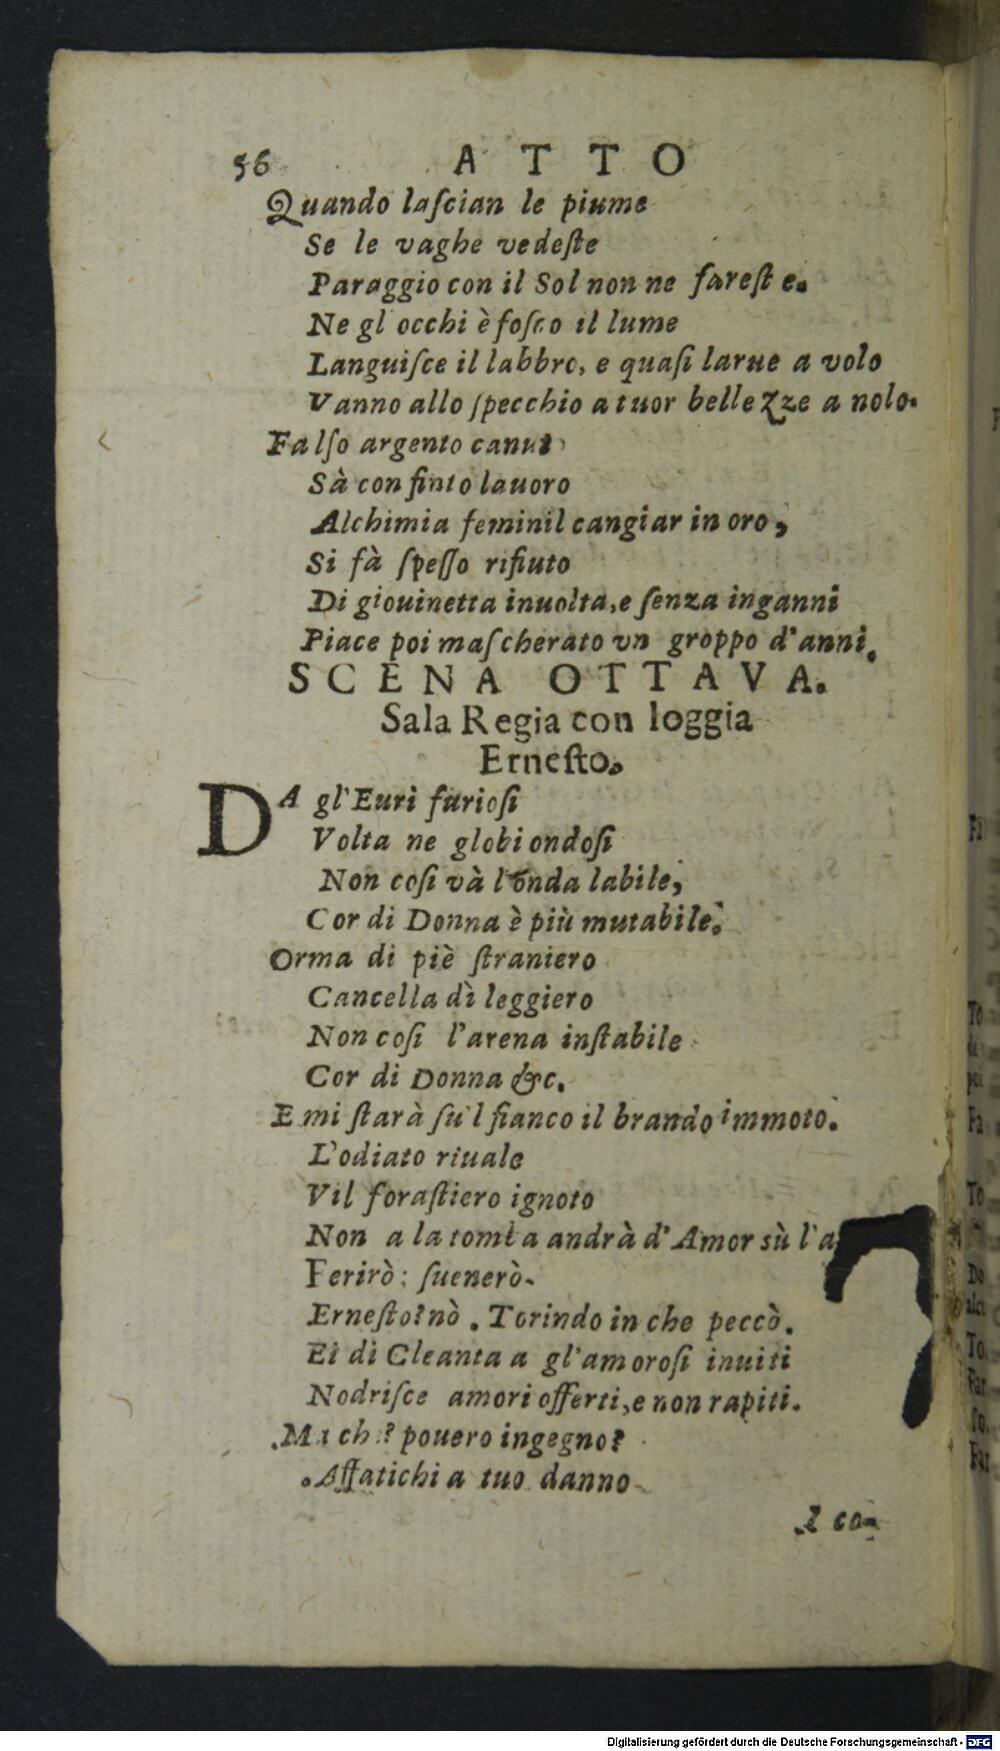 56 ATTO
Quando laſcian le piume
Se le vaghe vedeſte
Paraggio con il Sol non ne fareſte.
Ne gl'occhi è foſco il lume
Languiſce il labbro, e quaſi larue a volo
Vanno allo ſpecchio a tuor bellezze a nolo.
Falſo argento canut
Sà con finto lauoro
Alchimia feminil cangiar in oro,
Si fà ſpeſſo rifiuto
Di giouinetta inuolta, e ſenza inganni
Piace poi maſcherato vn groppo d'anni.
SCENA OTTAVA.
Sala Regia con loggia
Erneſto.
DA gl'Euri furioſi
Volta ne globi ondoſi
Non coſi và l'onda labile,
Cor di Donna è più mutabile.
Orma di piè ſtraniero
Cancella dì leggiero
Non coſi l'arena inſtabile
Cor di Donna &c.
E mi ſtarà ſu'l fianco il brando immoto.
L'odiato riuale
Vil foraſtiero ignoto
Non a la tomba andrà d'Amor sù l'a
Ferirò: ſuenerò.
Erneſto? nò. Torindo in che peccò.
Ei di Cleanta a gl'amoroſi inuiti
Nodriſce amori offerti, e non rapiti.
Ma che? pouero ingegno?
Affatichi a tuo danno
I co-
Fi
To
de
poi
Fa
To
Do
alcu
To.
Far
To.
Far
Digitalisierung gefördert durch die Deutsche Forschungsgemeinschaft - DFG